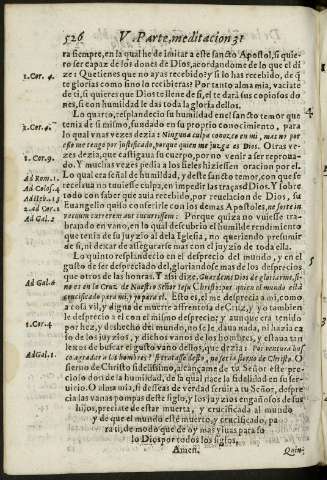 526 V. Parte, meditacion 31
ra siempre, en la qual he de imitar a este sancto Apostol, si quie-
ro ser capaz de los dones de Dios, acordandome de lo que el di-
1. Cor. 4. ze: Quetienes que no ayas recebido? y si lo has recebido, de q̃
te glorias como sino lo recibieras? Por tanto alma mia, vaciate
de ti, si quieres que Dios te llene de si, el te dará sus copiosos do
nes, si con humildad le das toda la gloria dellos.
Lo quarto, resplandecio su humildad en el sancto temor que 4
tenia de si mismo, fundado en su proprio conocimiento, para
1. Cor. 4. lo qual vnas vezes dezia: Ninguna culpa conozco en mi, mas no por
esso me tengo por justificado, porque quien me juzga es Dios. Otras ve-
1. Cor. 9. zes dezia, que castigaua su cuerpo, por no venir a ser reproua-
do. Y muchas vezes pedia a los fieles hiziessen oracion por el.
Ad Rom. 1. Lo qual era señal de humildad, y deste sancto temor, con que se
Ad Colos. 4 recelaua no tuuiesse culpa, en impedir las traças d Dios. Y sobre
todo con saber que auia recebido, por reuelacion de Dios, su
2. ad Cor. 2 Euangelio quiso conferirle con los demas Apostoles, ne forte in
Ad Gal. 2 vacuum currerem aut cucurrissem: Porque quiza no vuiesse tra-
bajado en vano, en lo qual descubrio el humilde rendimiento
que tenia de su juyzio al dela Iglesia, no queriendo presumir
de si, ni dexar de assegurarse mas con el juyzio de toda ella.
Lo quinto resplandecio en el desprecio del mundo, y en el 5
gusto de ser despreciado del, gloriandose mas de los desprecios
que otros de las honras. Y assi dize, Guardeme Dios de gloriarme, si-
Ad Gal. 6 no es en la Cruz de Nuestro Señor Iesu Christo: por quien el mundo està
crucificado para mi, y yo para el. Esto es, el me desprecia a mi, como
a cosa vil, y digna de muerte afrentosa de Cruz, y yo tambien
le desprecio a el con el mismo desprecio; y aunque era tenido
1. Cor. 4 por hez, y deshecho del mundo, no se le daua nada, ni hazia ca
so de los juyzios, y dichos vanos de los hombres, y estaua tan
lexos de buscar el gusto vano dellos, que dezia: Por ventura bus-
Ad Gal. 1. co agradar a los hombres? si tratasse desto, no seria sieruo de Christo. O
sieruo de Christo fidelissimo, alcançame de tu Señor este pre-
cioso don de la humildad, de la qual nace la fidelidad en su ser-
uicio. O alma mia, si desseas de verdad seruir a tu Señor, despre
cia las vanas pompas deste siglo, y los juyzios engañosos de sus
hijos, preciate de estar muerta, y crucificada al mundo
y de que el mundo estè muerto, y crucificado, pa
ra ti, de modo que de oy mas viuas para so
lo Dios por todos los siglos,
Amen. Quin-